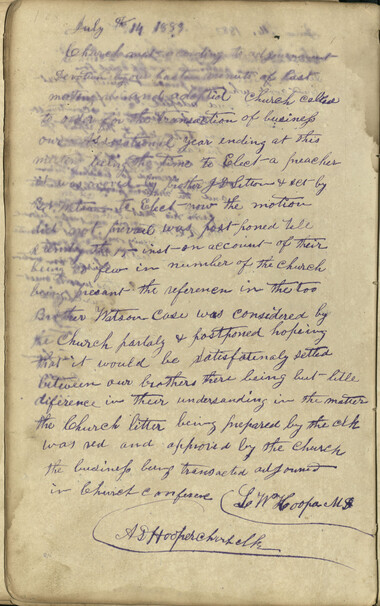 July th 14 1883
Church met according to
minuts of last
meeting and adopted Church called
to order for the transaction of business
our year ending at this
time to Elect a preacher
brother J D Sutton & set by
to Elect now the motion
did not prevail was post poned till
inst on account of their
being so few in number of the church
being present the reference in the too
Brother Watson Case was considered by
the Church partaly & postponed hopeing
that it would be satisfactualy setled
between our brothers there being but litle
diference in their undersanding in the matter
the Church letter being prepared by the clk
was red and approied by the Church
the business being transacted adjourned
in Church conference L W Hooper M D
A D Hooper church clk